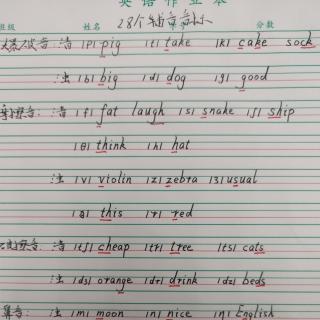 英语作业本
班级 姓名 分数
28个辅音音标
爆破音: 清 |p| pig |t| take |k| cake sock
浊 |b| big |d| dog |g| good
摩擦音: 清 |f| fat laugh |s| snake |ʃ| ship
|θ| think |h| hat
浊 |v| violin |z| zebra |ʒ| usual
|ð| this |r| red
破擦音: 清 |tʃ| cheap |tr| tree |ts| cats
浊 |dʒ| orange |dr| drink |dz| beds
鼻音: 浊 |m| moon |n| nice |ŋ| English